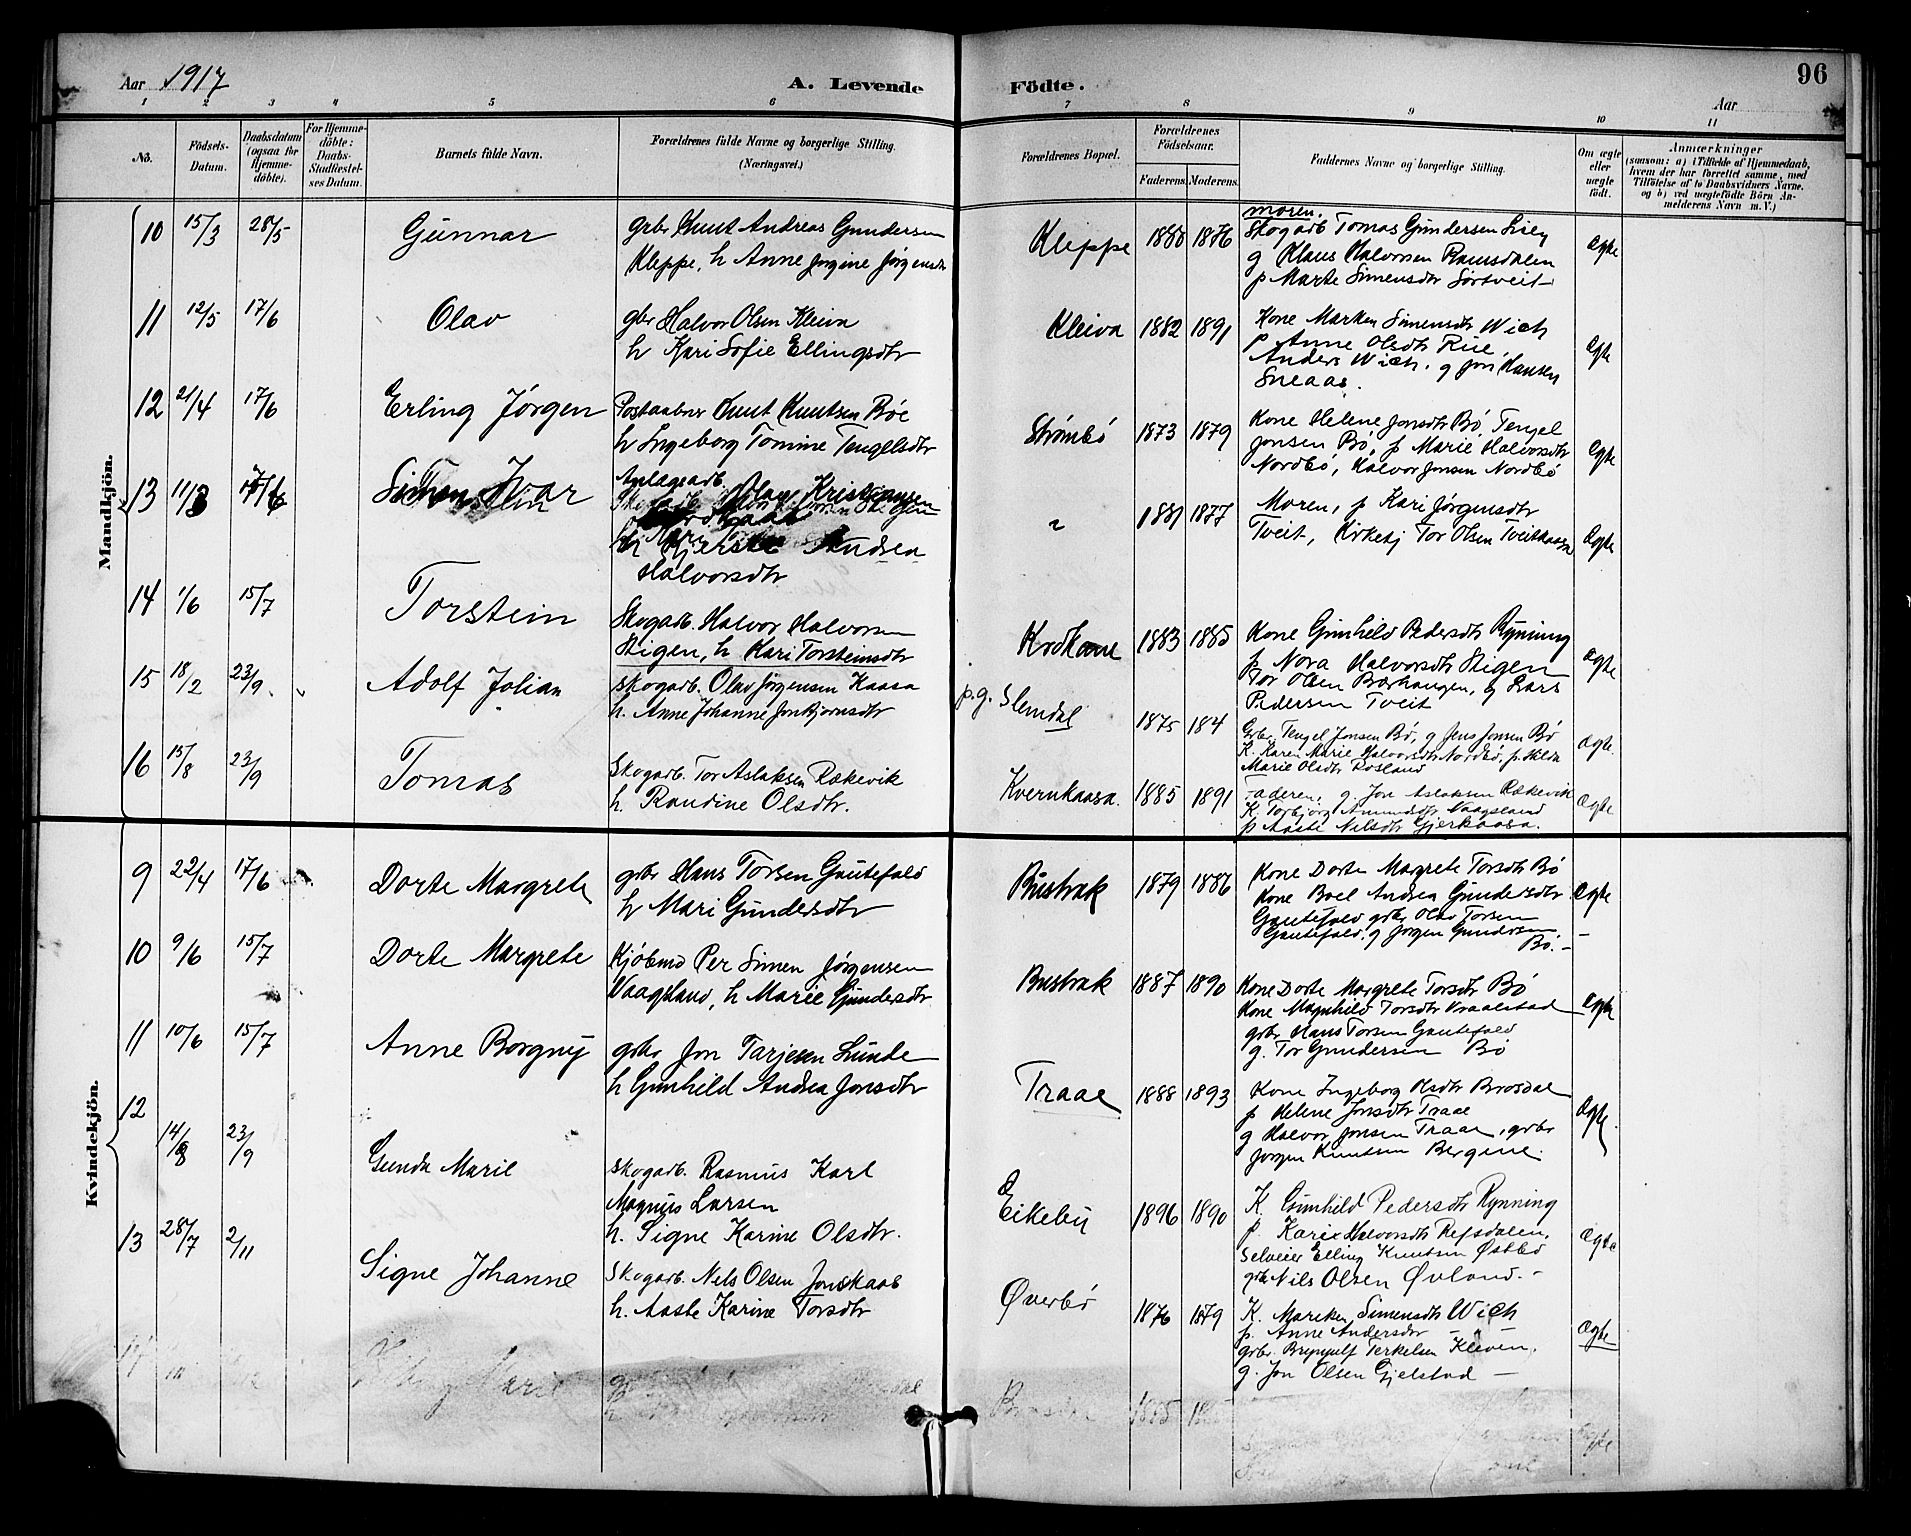 Aar 1917
A. Levende Födte.
96
Aar
1 2 3 4 5 6 7 8 9 10 11
No.
Födsels-Datum.
Daabsdatum (ogsaa for Hjemme-döbte).
For Hjemme-döbte: Daabs-Stadfæstel-ses Datum.
Barnets fulde Navn.
Forældrenes fulde Navne og borgerlige Stilling. (Næringsvei.)
Forældrenes Bopæl.
Forældrenes Födselsaar.
Faderens. Moderens.
Faddernes Navne og borgerlige Stilling.
Om ægte eller uægte födt.
Anmærkninger
(saasom: a) i Tilfælde af Hjemmedaab, hvem der har forrettet samme, med Tilföielse af to Daabsvidners Navne, og b) ved uægtefödte Börn An-melderens Navn m. V.)
Mandkjön.
10 15/3 28/5 Gunnar
grbr Knut Andreas Gundersen
Kleppe, h Anne Jørgine Jørgensdtr
Kleppe 1880 1876
moren.
Skogarb Tomas Gundersen
g Klaus Halvorsen Ramsdalen
p Marte Simensdtr Sørtveit
Ægte
11 12/5 17/6 Olav
gbr Halvor Olsen Kleiva
h Kari Sofie Ellingsdtr
Kleiva 1882 1891
Kone Marken Simensdtr Wich
p Anne Olsdtr Rue,
Anders Wich, g Jon Hansen
Sneaas.
Ægte
12 21/4 17/6 Erling Jørgen
Postaabner Knut Knutsen Bøe
h Ingeborg Tomine Tengelsdtr
Strømbø 1873 1879
Kone Helene Jonsdtr Bø, Tengel
Jonsen Bø, p Marie Halvorsdtr
Nordbø, Halvor Jonsen Nordbø
Ægte
13 11/3 17/6 Simon Ivar
Anlægsarb. Olav Kristiansen
h Kjerstine Andrea
Halvorsdtr
" 1881 1877
Moren, p Kari Jørgensdtr
Tveit, Kirkesj Tor Olsen Tveitkaasa
Ægte
14 1/6 15/7 Torstein
Skogarb. Halvor Halvorsen
Stigen, h Kari Torsteinsdtr
1883 1885
Kone Gunhild Pedersdtr Rynning
p Nora Halvorsdtr Stigen
Tor Olsen Barhaugen, g Lars
Pedersen Tveit
Ægte
15 18/2 23/9 Adolf Julian
Skogarb. Olav Jørgensen Kaasa
h. Anne Johanne Jonbjørnsdtr
p.g. Slemdal 1875 184
Grbr. Tengel Jonsen Bø, g Jens Jonsen Bø
K. Karen Marie Halvorsdtr Nordbø, p. Hilda
Marie Olsdtr Rosland
Ægte.
16 15/8 23/9 Tomas
Skogarb. Tor Aslaksen Rækevik
h. Randine Olsdtr.
Kvernkaasa. 1885 1891
Faderen, g. Jon Aslaksen Rækevik
K. Torbjørg Amundsdtr Vaagsland
p Aaste Nilsdtr Gjerkaasa.
Ægte
Kvindekjön.
9 22/4 17/6 Dorte Margrete
grbr Hans Torsen Gautefald
h Mari Gundersdtr
Bustrak 1879 1886
Kone Dorte Margrete Torsdtr Bø
Kone Boel Andrea Gundersdtr
Gautefald grbr Olav Torsen
Gautefald, g Jørgen Gundersen
Bø.
Ægte
10 9/6 15/7 Dorte Margrete
Kjøbmd Per Simen Jørgensen
Vaagsland, h Marie Gundersdtr
Bustrak 1887 1890
Kone Dorte Margrete Torsdtr Bø
Kone Magnhild Torsdtr Vraalstad
grbr Hans Torsen Gautefald
g. Tor Gundersen Bø
Ægte
11 10/6 15/7 Anne Borgny
grbr Jon Tarjesen Lunde
h Gunhild Andrea Jonsdtr
Traae 1888 1893
Kone Ingeborg Olsdtr Brosdal
p Helene Jonsdtr Traae
g Halvor Jonsen Traae, grbr
Jørgen Knutsen Bergene.
Ægte
12 14/8 23/9 Gunda Marie
Skogarb. Rasmus Karl
Magnus Larsen
h. Signe Karine Olsdtr.
Eikeby 1896 1890
K. Gunhild Pedersdtr Rynning
p. Karie Halvorsdtr Refsdalen,
Selveier Elling Knutsen Østbø
grbr Nils Olsen Øvland.
Ægte
13 28/7 2/11 Signe Johanne
Skogarb. Nils Olsen Jonskaas
h. Aaste Karine Torsdtr
Øverbø 1876 1879
K. Mariken Simensdtr Wich
p. Anne Andersdtr —
grbr. Brynjulf Terkelsen Kleven.
g. Jon Olsen Gjelstad —
Ægte
14
Marie
h
1885
Ægte